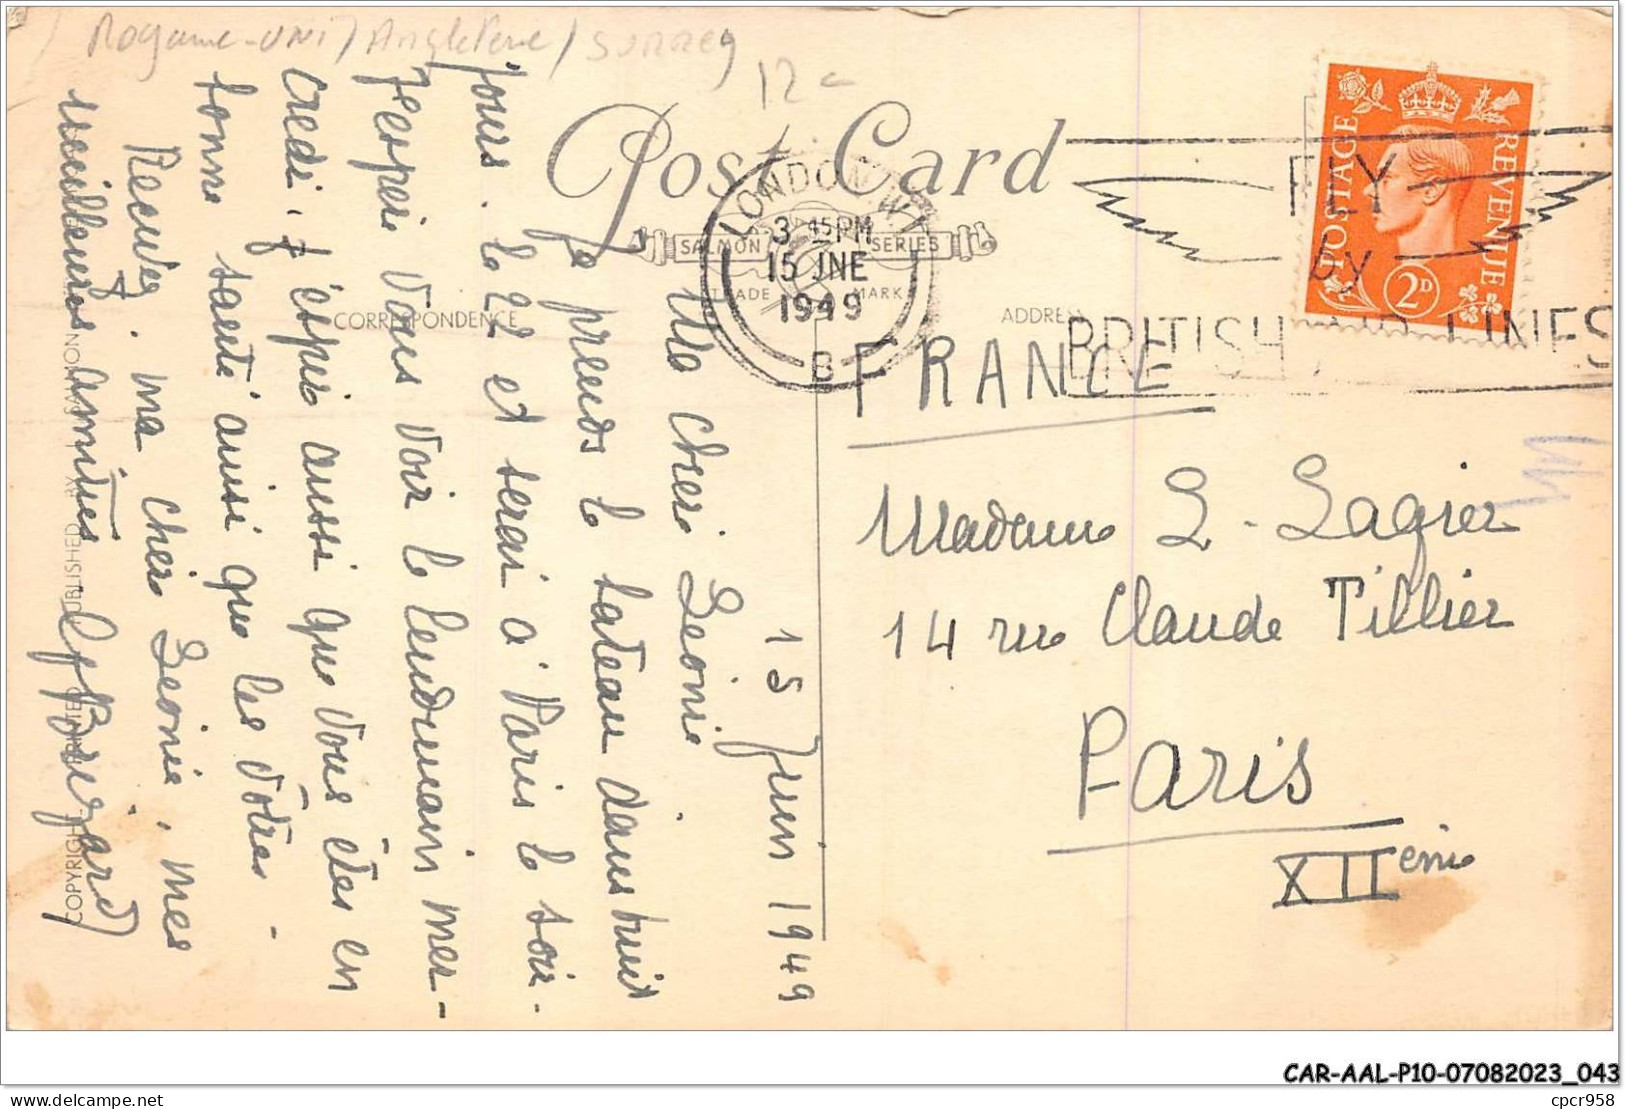 Royaume-Uni / Angleterre / Surrey
12
Post Card
SALMON SERIES
TRADE MARK
CORRESPONDENCE
ADDRESS
LONDON W1
3 15 PM
15 JNE
1949
B
FLY
by
BRITISH AIR LINES
POSTAGE
REVENUE
2D
FRANCE
Madame L. Lagier
14 rue Claude Tillier
Paris
XIIème
15 Juin 1949
Ma chère Léonie
Je prends le bateau dans huit
jours. le 22 et serai à Paris le soir.
J'espère vous voir le lendemain mer-
credi. J'espère aussi que vous êtes en
bonne santé ainsi que les vôtres.
Recevez, ma chère Léonie, mes
meilleures amitiés
COPYRIGHT
PRINTED
PUBLISHED BY
CAR-AAL-P10-07082023_043
delcampe.net
cpcr958